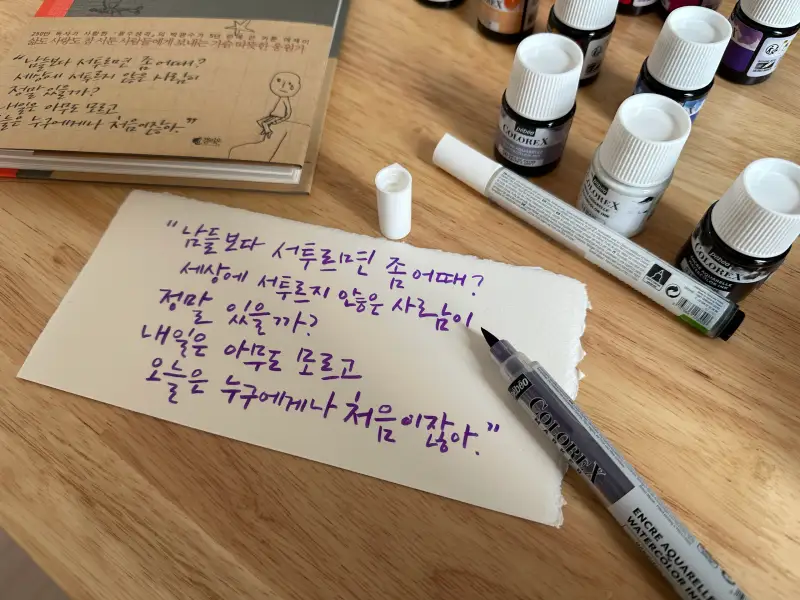 삶도 사랑도 참 서툰 사람들에게 보내는 가슴 따뜻한 응원가
"남들보다 서투르면 좀 어때?
세상에 서투르지 않은 사람이
정말 있을까?
내일은 아무도 모르고
오늘은 누구에게나 처음이잖아."
"남들보다 서투르면 좀 어때?
세상에 서투르지 않은 사람이
정말 있을까?
내일은 아무도 모르고
오늘은 누구에게나 처음이잖아."
pébéo
COLOREX
pébéo
COLOREX
COLOREX
pébéo
COLOREX
ENCRE AQUARELLE
WATERCOLOR INK